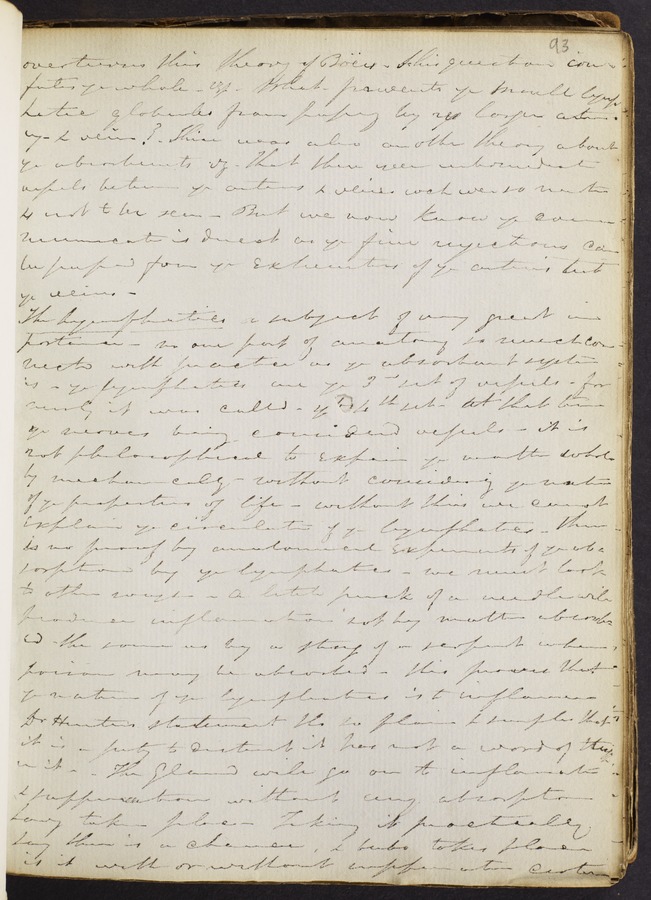 93
overturns this theory of Böeu - this question con
futes ye whole - vz - What prevents ye small lymp
hatic globules from passing by ye larger arter
y & veins? There was also another theory about
ye absorbents vz. That there were intermediate
vessels between ye arteries & veins wch were so minute
& not to be seen - But we now know ye com
munication is direct as ye fine injections can
be passed from ye extremities of ye arteries but
ye veins -
The Lymphatics a subject of very great im
portance - no one part of anatomy so much con
nects with practice as ye absorbent system
is - ye lymphatics are ye 3rd set of vessels - for
merly it was called - ye 4th set - at that time
ye nerves being considered vessels - it is
not philosophical to explain ye matter wholly
by mechanically - without considering ye nature
of ye properties of life - without this we cannot
explain ye circulation of ye lymphatics - There
is no proof by anatomical experiments of ye ab
sorption by ye lymphatics - we must look
to other - a little prick of a needle will
produce inflammation not by matter absorb
ed - the same as by a sting of a serpent where
poison may be absorbed - this proves that
ye nature of ye lymphatics is to inflame
Dr Hunters statement tho so plain & simple that
it is a pity to distrust it has not a word of truth
in it - The Gland will go on to inflammation
& suppuration without any absorption
having taken place - Taking it practically
say there is a chancre, & bubo takes place
is it with or without suppuration